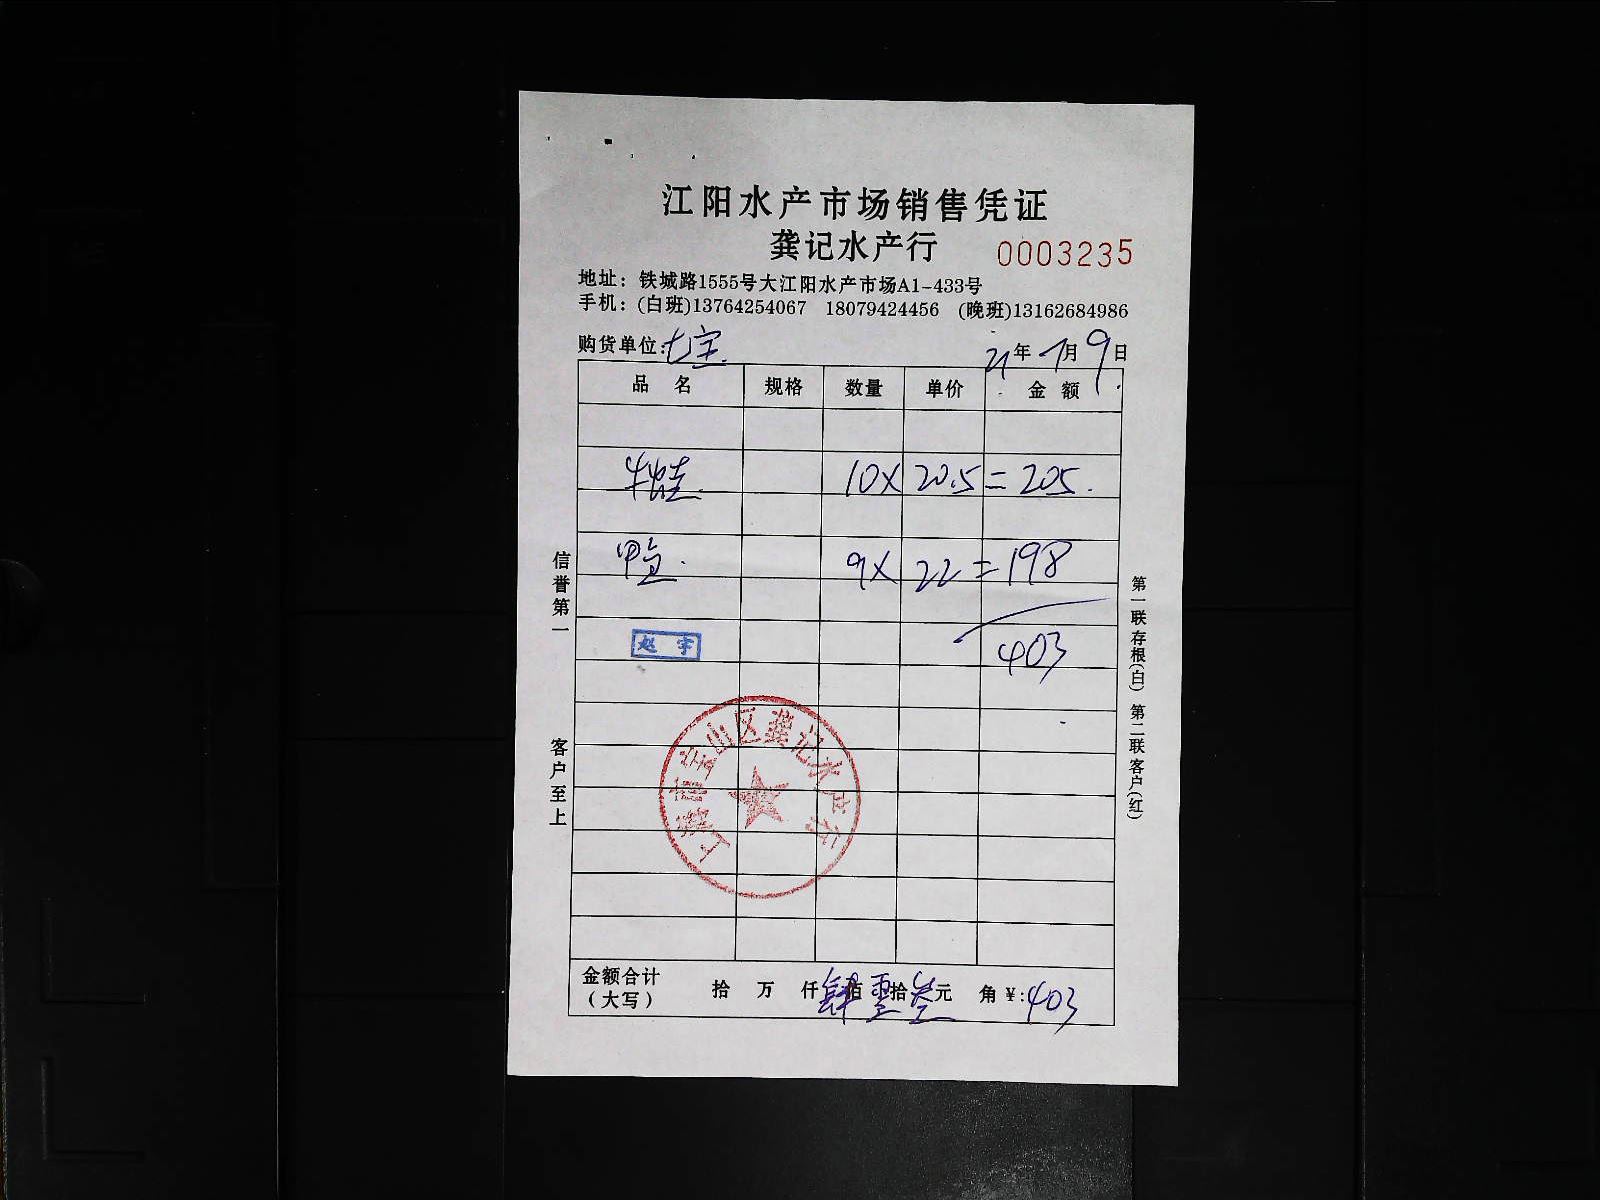 江阳水产市场销售凭证
龚记水产行 0003235
地址：铁城路1555号大江阳水产市场A1-433号
手机：(白班)13764254067 18079424456 (晚班)13162684986
购货单位：七宝 21年 7月 9日
品 名 规格 数量 单价 金 额
牛蛙 10× 20.5= 205.
甲鱼. 9× 22= 198
赵 宇 403
上海市宝山区龚记水产行
信誉第一 客户至上
第一联存根(白) 第二联客户(红)
金额合计（大写） 拾 万 仟 肆佰 零拾 叁元 角 ¥:403